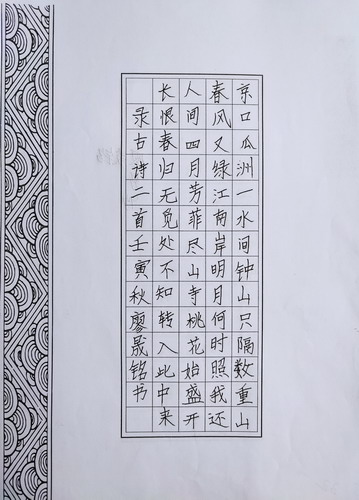 京口瓜洲一水间钟山只隔数重山
春风又绿江南岸明月何时照我还
人间四月芳菲尽山寺桃花始盛开
长恨春归无觅处不知转入此中来
录古诗二首壬寅秋廖晟铭书